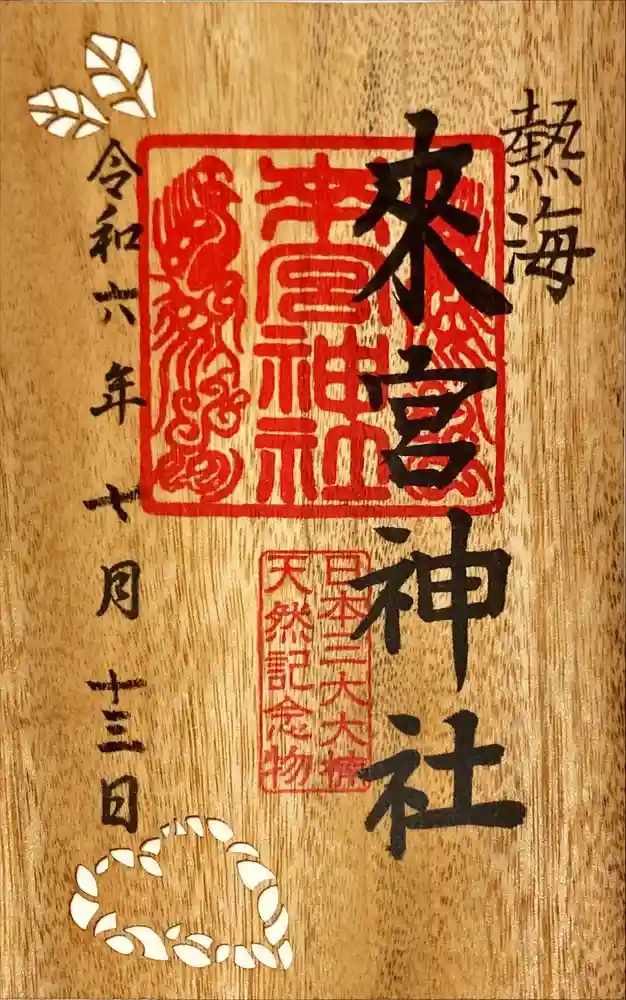 熱海
來宮神社
來宮神社
日本三大大楠
天然記念物
令和六年七月十三日